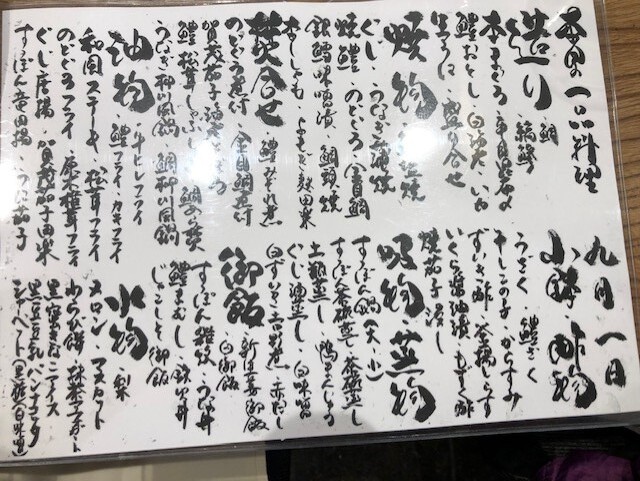 本日の一品料理 九月一日
造り ・鯛 ・縞鯵
本まぐろ
鱧おとし ・いか
生うに ・盛り合せ
焼物
ぐじ ・うなぎ蒲焼
焼鱧 ・のどぐろ ・金目鯛
銀鱈味噌漬 ・鯛頭焼
よもぎ麩田楽
焚合せ ・鱧みぞれ煮
のどぐろ煮付 ・金目鯛煮付
賀茂茄子
鱧松茸しゃぶ ・鯛あら焚
うなぎ柳川風鍋 ・鯛柳川風鍋
油物 ・牛ヒレフライ
・鱧フライ ・カキフライ
和風ステーキ ・松茸フライ
のどぐろフライ
ぐじ唐揚 ・賀茂茄子田楽
すっぽん竜田揚
小鉢・酢物
うざく ・鱧ざく
からすみ
ずいき酢 ・釜揚しらす
いくら醤油漬 ・もずく酢
焼茄子浸し
吸物・蒸物
すっぽん鍋(大・小)
すっぽん茶碗蒸し ・茶碗蒸し
土瓶蒸し
ぐじ酒蒸し ・白味噌
白ずいき吉野煮 ・赤だし
御飯 ・新生姜御飯
・白御飯
すっぽん雑炊 ・うな丼
鱧まむし ・鉄火丼
じゃこ御飯
水物 ・梨
メロン ・マスカット
わらび餅 ・抹茶
アイス
黒豆豆乳パンナコッタ
シャーベット